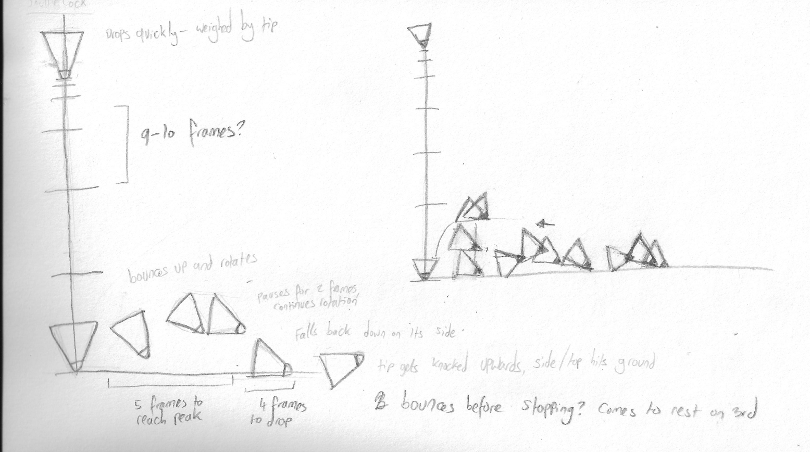 Drops quickly - weighed by tip
9-10 frames?
bounces up and rotates
pauses for 2 frames,
continues rotation
Falls back down on its side.
tip gets knocked upwards, side/top hits ground
5 frames to
reach peak
4 frames
to drop
bounces before stopping? Comes to rest on 3rd